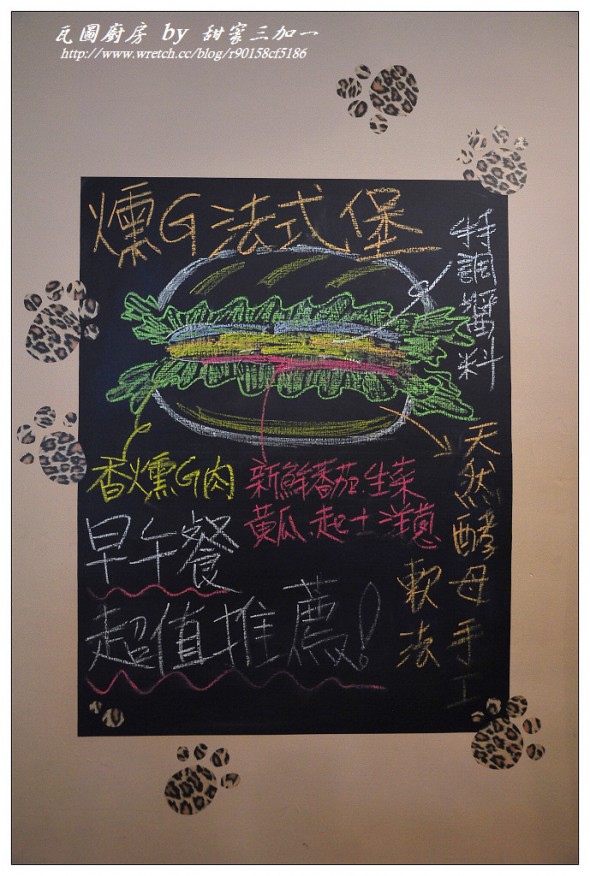 瓦圖廚房 by 甜蜜三加一
http://www.wretch.cc/blog/r90158cf5186
燻G法式堡
特調醬料
香燻G肉
新鮮蕃茄.生菜
黃瓜.起士洋蔥
天然酵母手工
軟法
早午餐
超值推薦!